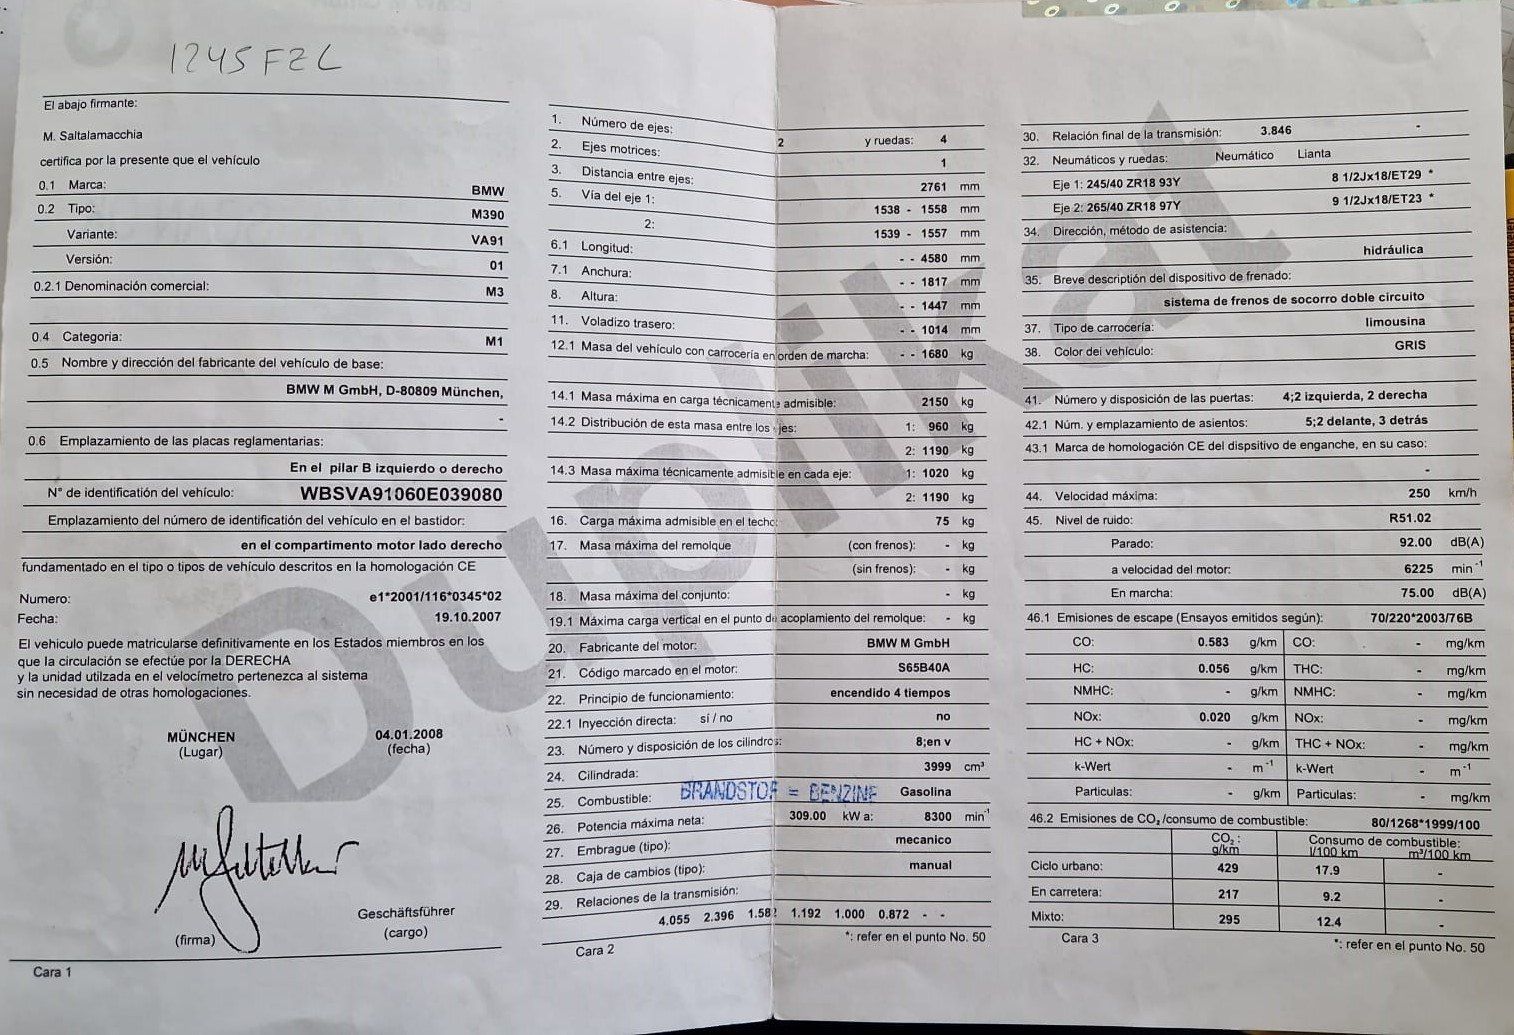 1245FZL
El abajo firmante:
M. Saltalamacchia
certifica por la presente que el vehículo
0.1 Marca: BMW
0.2 Tipo: M390
Variante: VA91
Versión: 01
0.2.1 Denominación comercial: M3
0.4 Categoria: M1
0.5 Nombre y dirección del fabricante del vehículo de base:
BMW M GmbH, D-80809 München,
-
0.6 Emplazamiento de las placas reglamentarias:
En el pilar B izquierdo o derecho
N° de identificatión del vehículo: WBSVA91060E039080
Emplazamiento del número de identificatión del vehículo en el bastidor:
en el compartimento motor lado derecho
fundamentado en el tipo o tipos de vehículo descritos en la homologación CE
Numero: e1*2001/116*0345*02
Fecha: 19.10.2007
El vehiculo puede matricularse definitivamente en los Estados miembros en los
que la circulación se efectúe por la DERECHA
y la unidad utilzada en el velocímetro pertenezca al sistema
sin necesidad de otras homologaciones.
MÜNCHEN 04.01.2008
(Lugar) (fecha)
Geschäftsführer
(firma) (cargo)
Cara 1
1. Número de ejes: 2 y ruedas: 4
2. Ejes motrices: 1
3. Distancia entre ejes: 2761 mm
5. Vía del eje 1: 1538 - 1558 mm
2: 1539 - 1557 mm
6.1 Longitud: - - 4580 mm
7.1 Anchura: - - 1817 mm
8. Altura: - - 1447 mm
11. Voladizo trasero: - - 1014 mm
12.1 Masa del vehículo con carrocería en orden de marcha: - - 1680 kg
14.1 Masa máxima en carga técnicamente admisible: 2150 kg
14.2 Distribución de esta masa entre los ejes: 1: 960 kg
2: 1190 kg
14.3 Masa máxima técnicamente admisible en cada eje: 1: 1020 kg
2: 1190 kg
16. Carga máxima admisible en el techo: 75 kg
17. Masa máxima del remolque (con frenos): - kg
(sin frenos): - kg
18. Masa máxima del conjunto: - kg
19.1 Máxima carga vertical en el punto de acoplamiento del remolque: - kg
20. Fabricante del motor: BMW M GmbH
21. Código marcado en el motor: S65B40A
22. Principio de funcionamiento: encendido 4 tiempos
22.1 Inyección directa: sí / no no
23. Número y disposición de los cilindros: 8;en v
24. Cilindrada: 3999 cm³
25. Combustible: BRANDSTOF = BENZINE Gasolina
26. Potencia máxima neta: 309.00 kW a: 8300 min-1
27. Embrague (tipo): mecanico
28. Caja de cambios (tipo): manual
29. Relaciones de la transmisión:
4.055 2.396 1.582 1.192 1.000 0.872 - -
*: refer en el punto No. 50
Cara 2
30. Relación final de la transmisión: 3.846 -
32. Neumáticos y ruedas: Neumático Llanta
Eje 1: 245/40 ZR18 93Y 8 1/2Jx18/ET29 *
Eje 2: 265/40 ZR18 97Y 9 1/2Jx18/ET23 *
34. Dirección, método de asistencia:
hidráulica
35. Breve descriptión del dispositivo de frenado:
sistema de frenos de socorro doble circuito
37. Tipo de carrocería: limousina
38. Color del vehículo: GRIS
41. Número y disposición de las puertas: 4;2 izquierda, 2 derecha
42.1 Núm. y emplazamiento de asientos: 5;2 delante, 3 detrás
43.1 Marca de homologación CE del dispsitivo de enganche, en su caso:
-
44. Velocidad máxima: 250 km/h
45. Nivel de ruido: R51.02
Parado: 92.00 dB(A)
a velocidad del motor: 6225 min-1
En marcha: 75.00 dB(A)
46.1 Emisiones de escape (Ensayos emitidos según): 70/220*2003/76B
CO: 0.583 g/km CO: - mg/km
HC: 0.056 g/km THC: - mg/km
NMHC: - g/km NMHC: - mg/km
NOx: 0.020 g/km NOx: - mg/km
HC + NOx: - g/km THC + NOx: - mg/km
k-Wert - m-1 k-Wert - m-1
Particulas: - g/km Particulas: - mg/km
46.2 Emisiones de CO₂/consumo de combustible: 80/1268*1999/100
CO₂: Consumo de combustible:
g/km l/100 km m³/100 km
Ciclo urbano: 429 17.9 -
En carretera: 217 9.2 -
Mixto: 295 12.4 -
Cara 3 *: refer en el punto No. 50
Duplikat